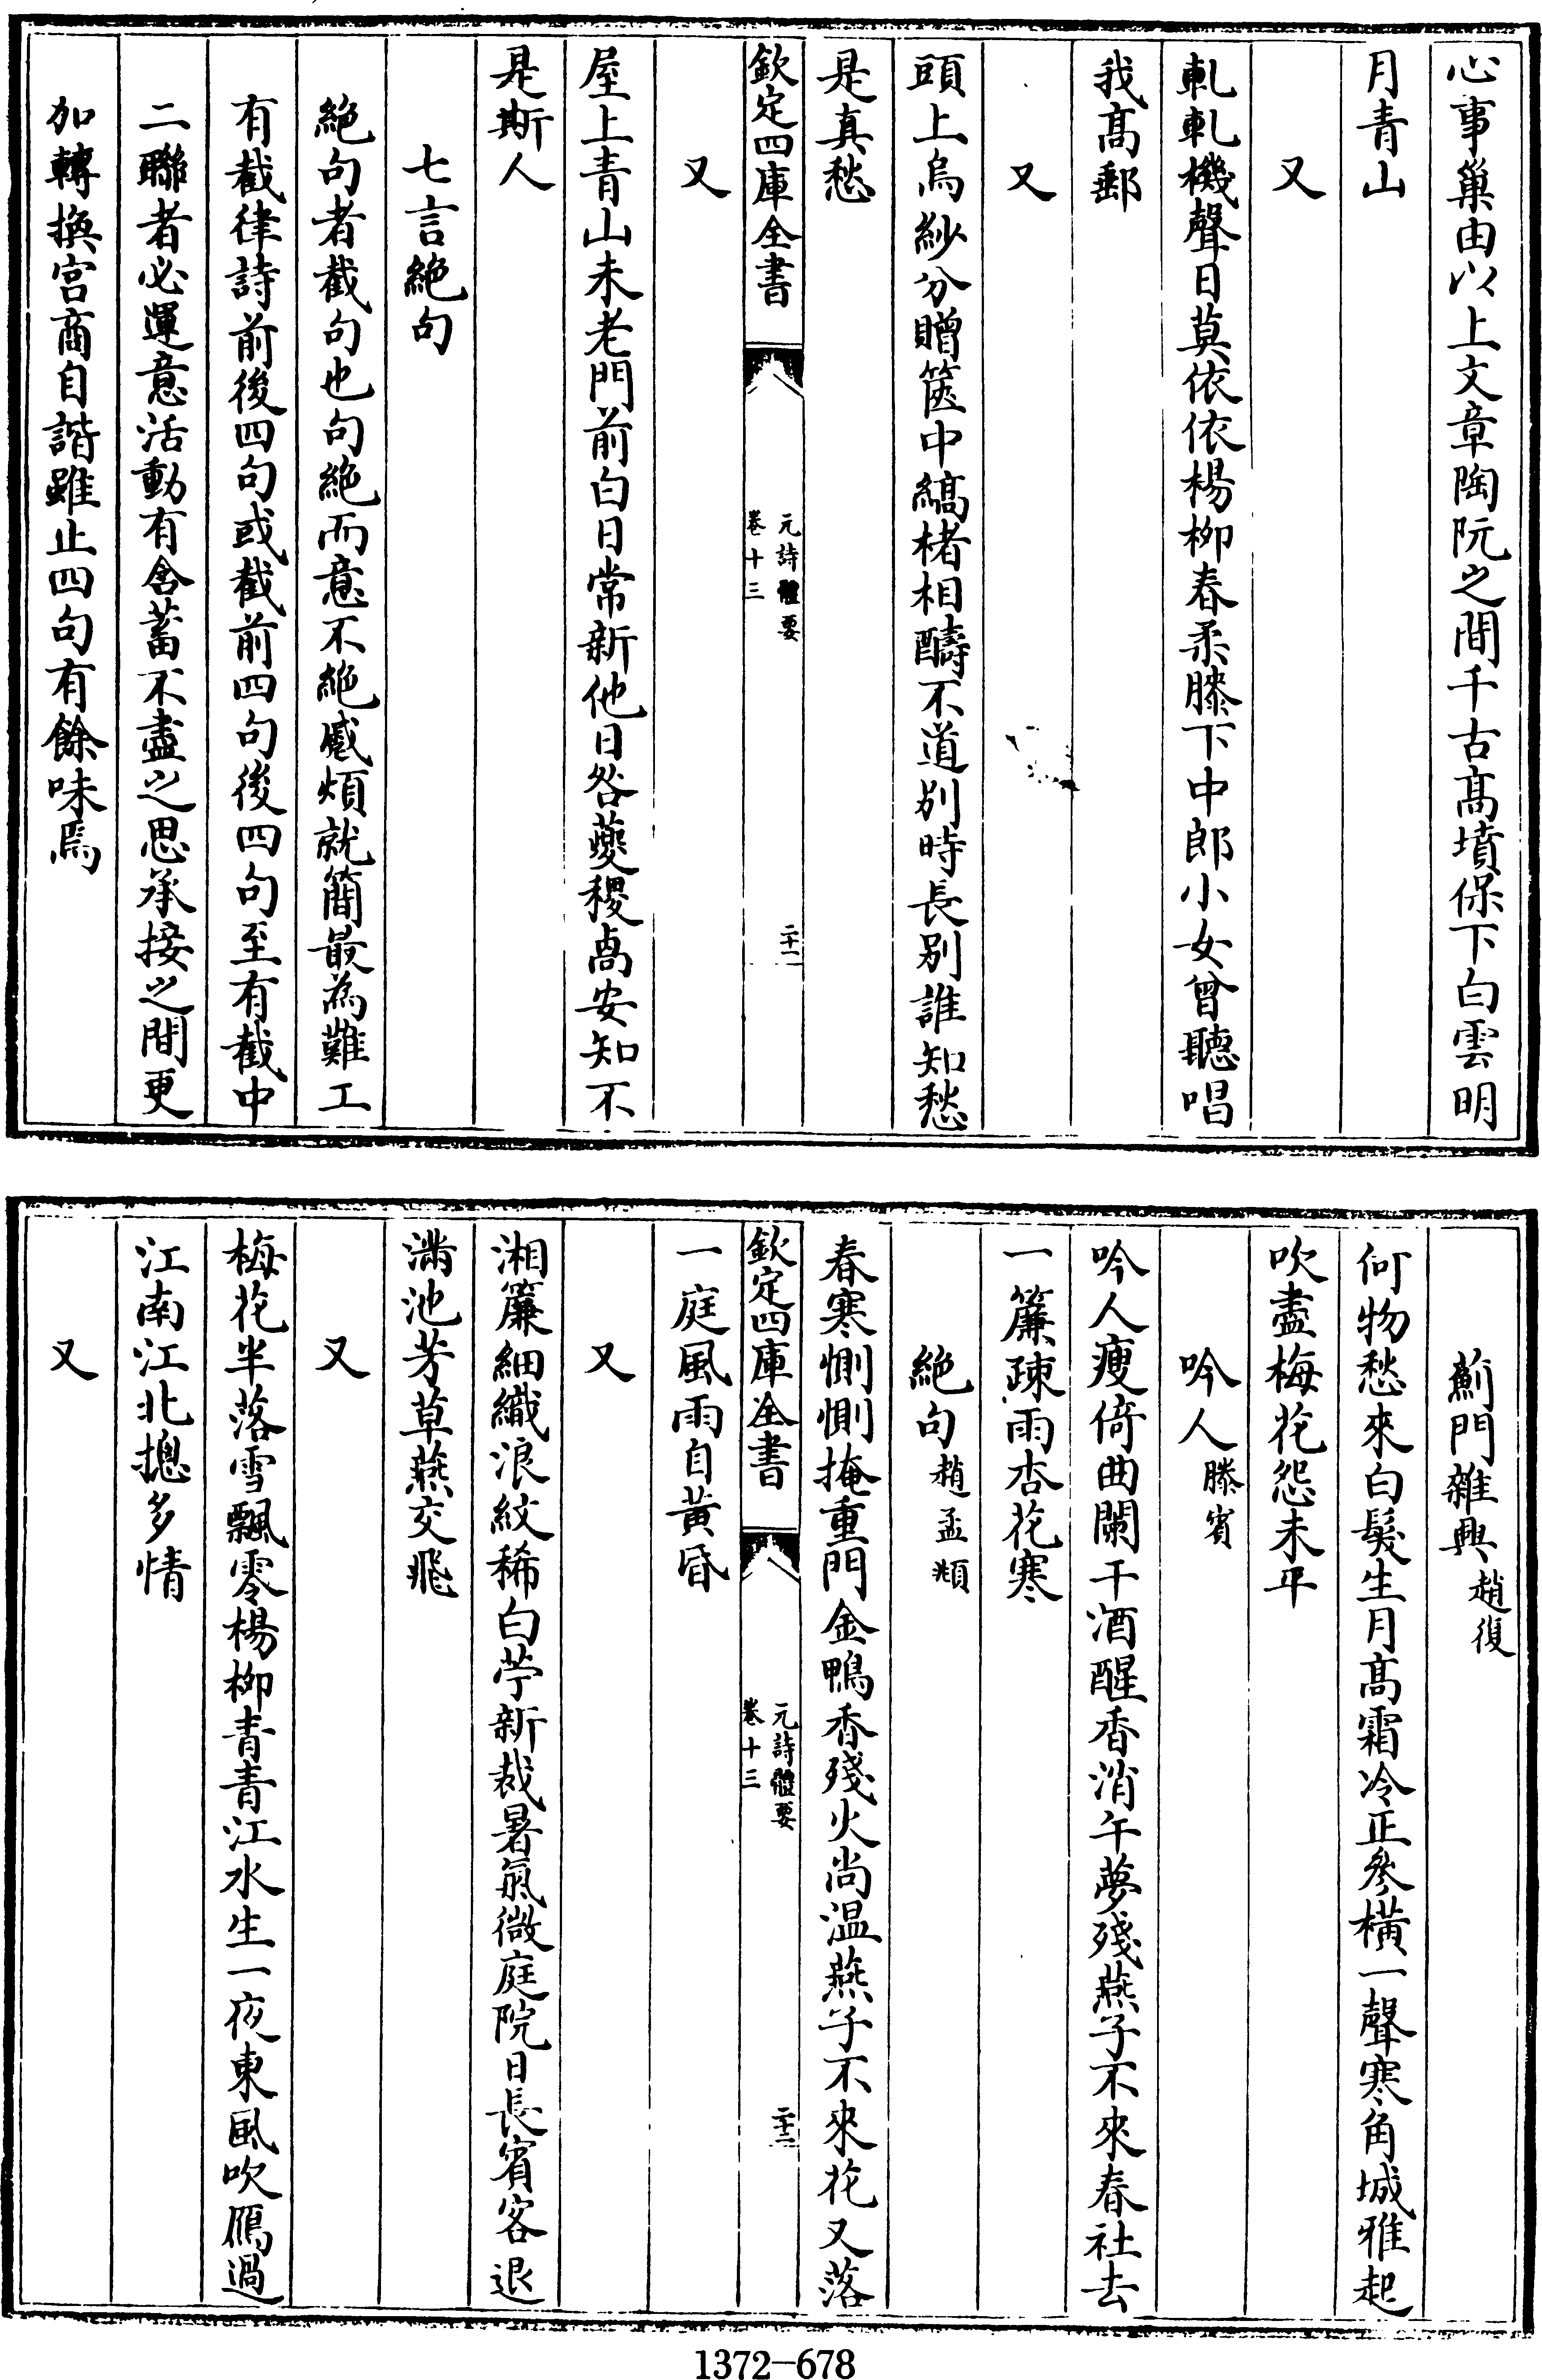 心事巢由以上文章陶阮之間千古髙墳保下白雲明
月青山
又
軋軋機聲日莫依依楊栁春柔膝下中郎小女曾聽唱
我髙郵
又
頭上烏紗分贈篋中縞楮相醻不道别時長别誰知愁
是真愁
欽定四庫全書
元詩體要
卷十三
二十一
又
屋上青山未老門前白日常新他日咎夔稷卨安知不
是斯人
七言絶句
絶句者截句也句絶而意不絶慼煩就簡最為難工
有截律詩前後四句或截前四句後四句至有截中
二聯者必運意活動有含蓄不盡之思承接之間更
加轉換宫商自諧雖止四句有餘味焉
薊門雜興趙復
何物愁來白髮生月髙霜冷正參横一聲寒角城雅起
吹盡梅花怨未平
吟人滕賓
吟人瘦倚曲闌干酒醒香消午夢殘燕子不來春社去
一簾疎雨杏花寒
絶句趙孟頫
春寒惻惻掩重門金鴨香殘火尚温燕子不來花又落
欽定四庫全書
元詩體要
卷十三
二十二
一庭風雨自黄昏
又
湘簾細織浪紋稀白苧新裁暑氣微庭院日長賓客退
滿池芳草燕交飛
又
梅花半落雪飄零楊栁青青江水生一夜東風吹鴈過
江南江北摠多情
又
1372-678